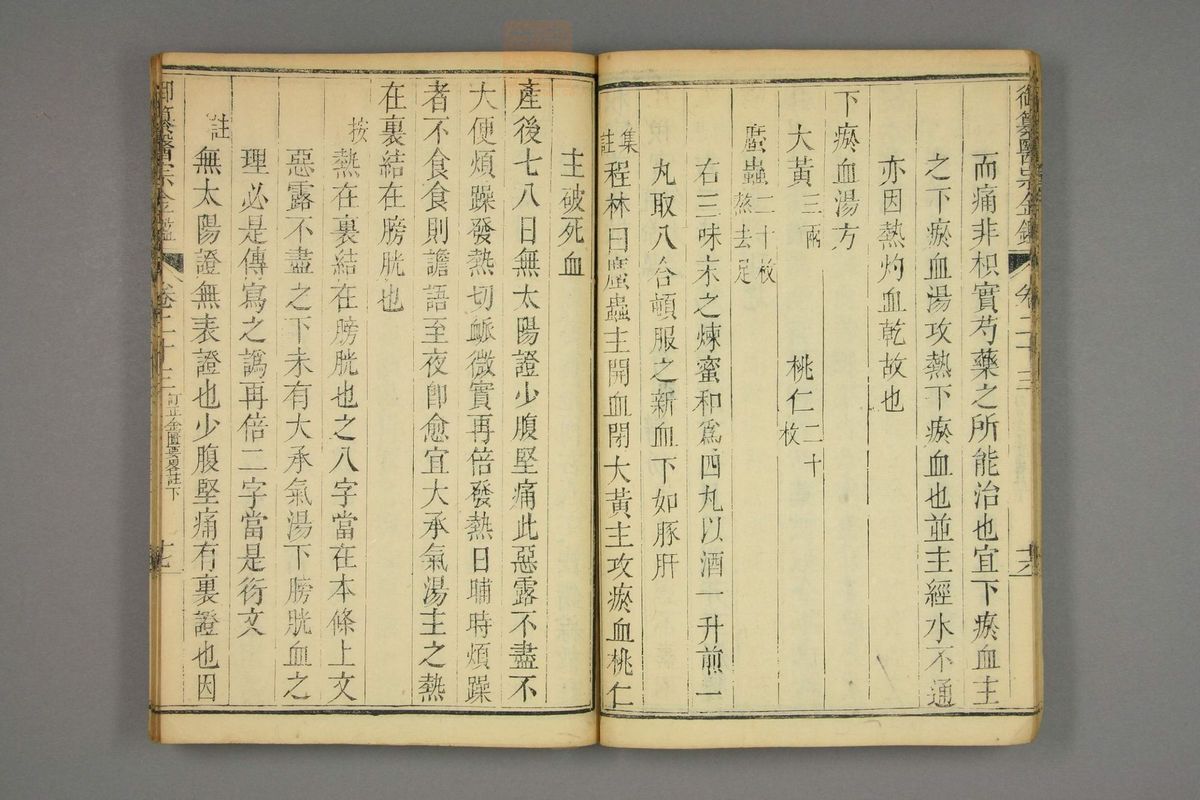 御纂醫宗金鑑
卷二十三
而痛非枳實芍藥之所能治也宜下瘀血主
之下瘀血湯攻熱下瘀血也並主經水不通
亦因熱灼血乾故也
下瘀血湯方
大黃三兩 桃仁二十枚
䗪蟲二十枚熬去足
右三味末之煉蜜和為四丸以酒一升煎一
丸取八合頓服之新血下如豚肝
集註程林曰䗪蟲主開血閉大黃主攻瘀血桃仁
主破死血
產後七八日無太陽證少腹堅痛此惡露不盡不
大便煩躁發熱切脈微實再倍發熱日晡時煩躁
者不食食則譫語至夜卽愈宜大承氣湯主之熱
在裏結在膀胱也
按熱在裏結在膀胱也之八字當在本條上文
惡露不盡之下未有大承氣湯下膀胱血之
理必是傳寫之譌再倍二字當是衍文
註無太陽證無表證也少腹堅痛有裏證也因
御纂醫宗金鑑
卷二十三 訂正金匱要畧註下